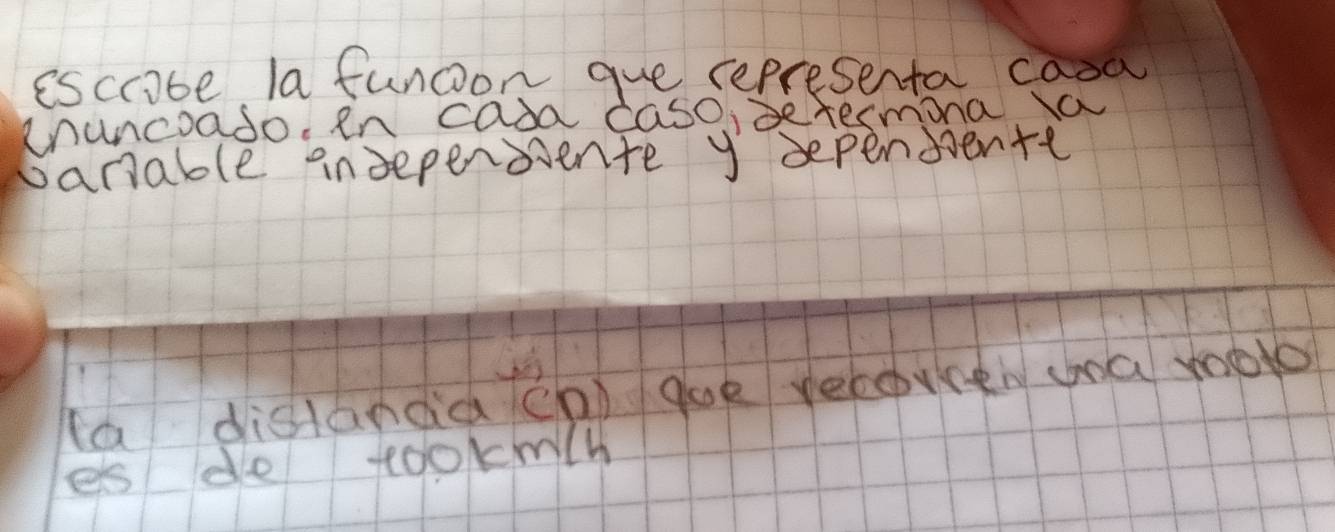 escribe la funcion que representa cada
enunciado. en cada caso, determina la
variable independiente y dependiente
la distancia (D) que recorren una moto
es de 100km/h